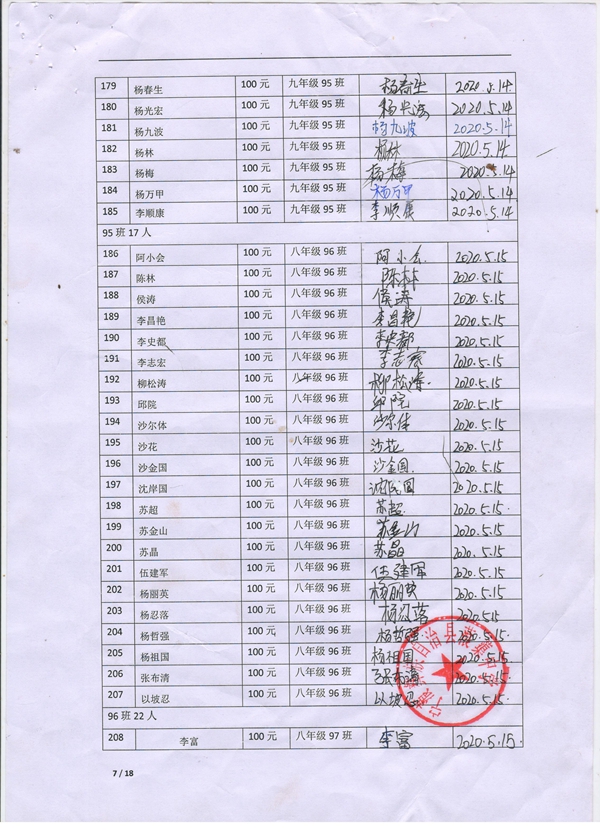 179 杨春生 100元 九年级95班 杨春生 2020.5.14
180 杨光宏 100元 九年级95班 杨光宏 2020.5.14
181 杨九波 100元 九年级95班 杨九波 2020.5.14
182 杨林 100元 九年级95班 杨林 2020.5.14
183 杨梅 100元 九年级95班 杨梅 2020.5.14
184 杨万甲 100元 九年级95班 杨万甲 2020.5.14
185 李顺康 100元 九年级95班 李顺康 2020.5.14
95班17人
186 阿小会 100元 八年级96班 阿小会 2020.5.15
187 陈林 100元 八年级96班 陈林 2020.5.15
188 侯涛 100元 八年级96班 侯涛 2020.5.15
189 李昌艳 100元 八年级96班 李昌艳 2020.5.15
190 李史都 100元 八年级96班 李史都 2020.5.15
191 李志宏 100元 八年级96班 李志宏 2020.5.15
192 柳松涛 100元 八年级96班 柳松涛 2020.5.15
193 邱院 100元 八年级96班 邱院 2020.5.15
194 沙尔体 100元 八年级96班 沙尔体 2020.5.15
195 沙花 100元 八年级96班 沙花 2020.5.15
196 沙金国 100元 八年级96班 沙金国 2020.5.15
197 沈岸国 100元 八年级96班 2020.5.15
198 苏超 100元 八年级96班 苏超 2020.5.15
199 苏金山 100元 八年级96班 苏金山 2020.5.15
200 苏晶 100元 八年级96班 苏晶 2020.5.15
201 伍建军 100元 八年级96班 伍建军 2020.5.15
202 杨丽英 100元 八年级96班 杨丽英 2020.5.15
203 杨忍落 100元 八年级96班 杨忍落 2020.5.15
204 杨哲强 100元 八年级96班 杨哲强 2020.5.15
205 杨祖国 100元 八年级96班 杨祖国 2020.5.15
206 张布清 100元 八年级96班 张布清 2020.5.15
207 以坡忍 100元 八年级96班 以坡忍 2020.5.15
96班22人
208 李富 100元 八年级97班 李富 2020.5.15.
7 / 18